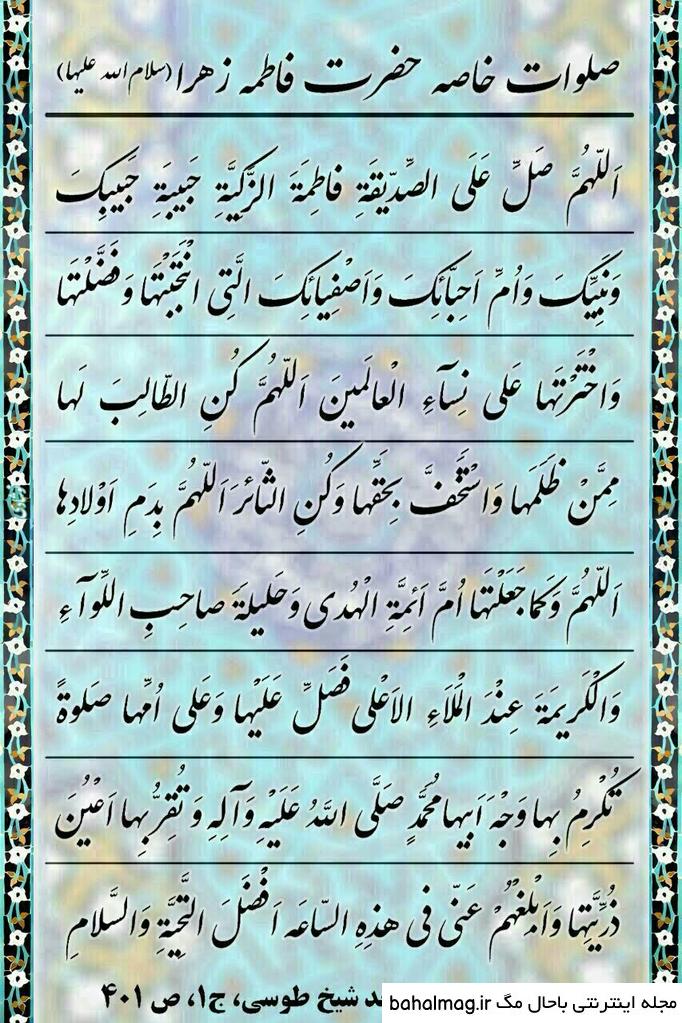 صلوات خاصه حضرت فاطمه زهرا (سلام الله علیها)
اَللّهُمَّ صَلِّ عَلَی الصِّدّیقَةِ فاطِمَةَ الزَّکِیَّةِ حَبیبَةِ حَبیبِکَ
وَنَبِیِّکَ وَاُمِّ اَحِبّائِکَ وَاَصْفِیائِکَ الَّتِی انْتَجَبْتَها وَفَضَّلْتَها
وَاخْتَرْتَها عَلی نِسآءِ الْعالَمینَ اَللّهُمَّ کُنِ الطّالِبَ لَها
مِمَّنْ ظَلَمَها وَاسْتَخَفَّ بِحَقِّها وَکُنِ الثّائِرَ اَللّهُمَّ بِدَمِ اَوْلادِها
اَللّهُمَّ وَکَما جَعَلْتَها اُمَّ اَئِمَّةِ الْهُدی وَحَلیلَةَ صاحِبِ اللِّوآءِ
وَالْکَریمَةَ عِنْدَ الْمَلَاءِ الاَعْلی فَصَلِّ عَلَیْها وَعَلی اُمِّها صَلوةً
تُکْرِمُ بِها وَجْهَ اَبیها مُحَمَّدٍ صَلَّی اللهُ عَلَیْهِ وَآلِهِ وَتُقِرُّ بِها اَعْیُنَ
ذُرِّیَّتِها وَاَبْلِغْهُمْ عَنّی فی هذِهِ السّاعَه اَفْضَلَ التَّحِیَّةِ وَالسَّلامِ
شیخ طوسی، ج۱، ص ۴۰۱
مجله اینترنتی باحال مگ bahalmag.ir